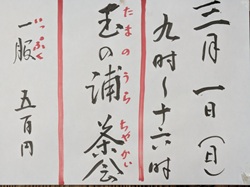 三月一日(日)
九时〜十六时
たまのうら ちゃかい
玉の浦 茶会
いっぷく
一服 五百円